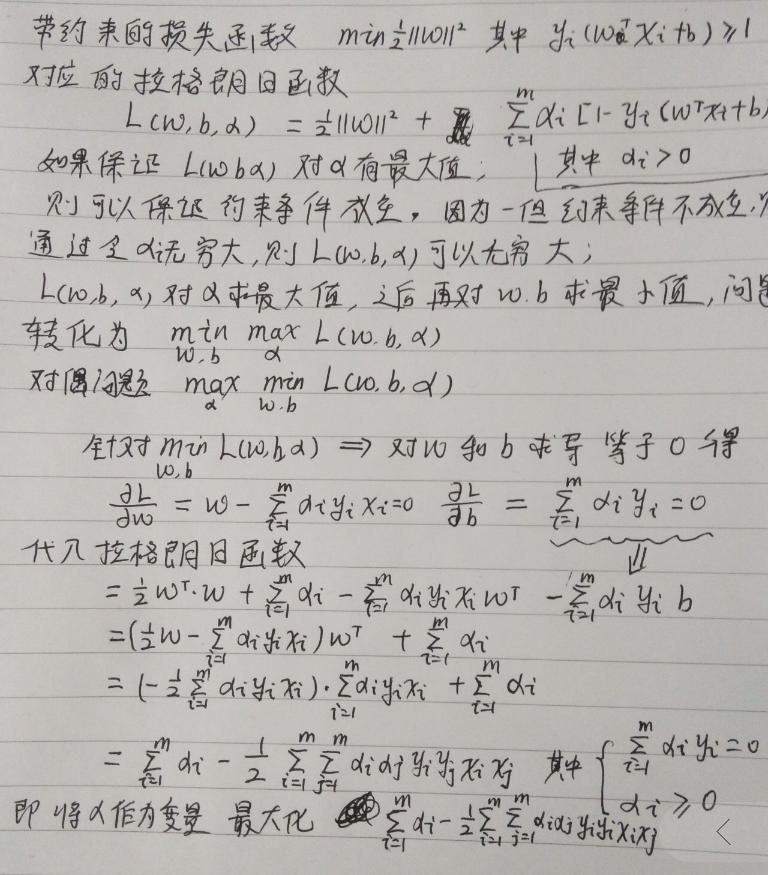 带约束的损失函数 min ½||w||² 其中 yᵢ(wᵀxᵢ+b)≥1
对应的拉格朗日函数
L(w,b,α) = ½||w||² + Σᵢ₌₁ᵐ αᵢ[1-yᵢ(wᵀxᵢ+b)
如果保证 L(w b α) 对α有最大值; 其中 αᵢ>0
则可以保证约束条件成立。因为一但约束条件不成立,
通过令αᵢ无穷大,则L(w,b,α)可以无穷大;
L(w,b,α)对α求最大值,之后再对w.b求最小值,问题
转化为 min w,b max α L(w.b,α)
对偶问题 max α min w.b L(w,b,α)
针对 min w,b L(w,b,α) ⇒ 对w和b求导等于0得
∂L/∂w = w - Σᵢ₌₁ᵐ αᵢyᵢxᵢ=0 ∂L/∂b = Σᵢ₌₁ᵐ αᵢyᵢ=0
代入拉格朗日函数 ⇓
= ½wᵀ·w + Σᵢ₌₁ᵐ αᵢ - Σᵢ₌₁ᵐ αᵢyᵢxᵢwᵀ - Σᵢ₌₁ᵐ αᵢyᵢb
=(½w - Σᵢ₌₁ᵐ αᵢyᵢxᵢ)wᵀ + Σᵢ₌₁ᵐ αᵢ
= (-½Σᵢ₌₁ᵐ αᵢyᵢxᵢ)·Σᵢ₌₁ᵐ αᵢyᵢxᵢ + Σᵢ₌₁ᵐ αᵢ
= Σᵢ₌₁ᵐ αᵢ - ½ Σᵢ₌₁ᵐ Σⱼ₌₁ᵐ αᵢαⱼyᵢyⱼxᵢxⱼ 其中 { Σᵢ₌₁ᵐ αᵢyᵢ=0
αᵢ≥0
即将α作为变量 最大化 Σᵢ₌₁ᵐ αᵢ - ½Σᵢ₌₁ᵐ Σⱼ₌₁ᵐ αᵢαⱼyᵢyⱼxᵢxⱼ